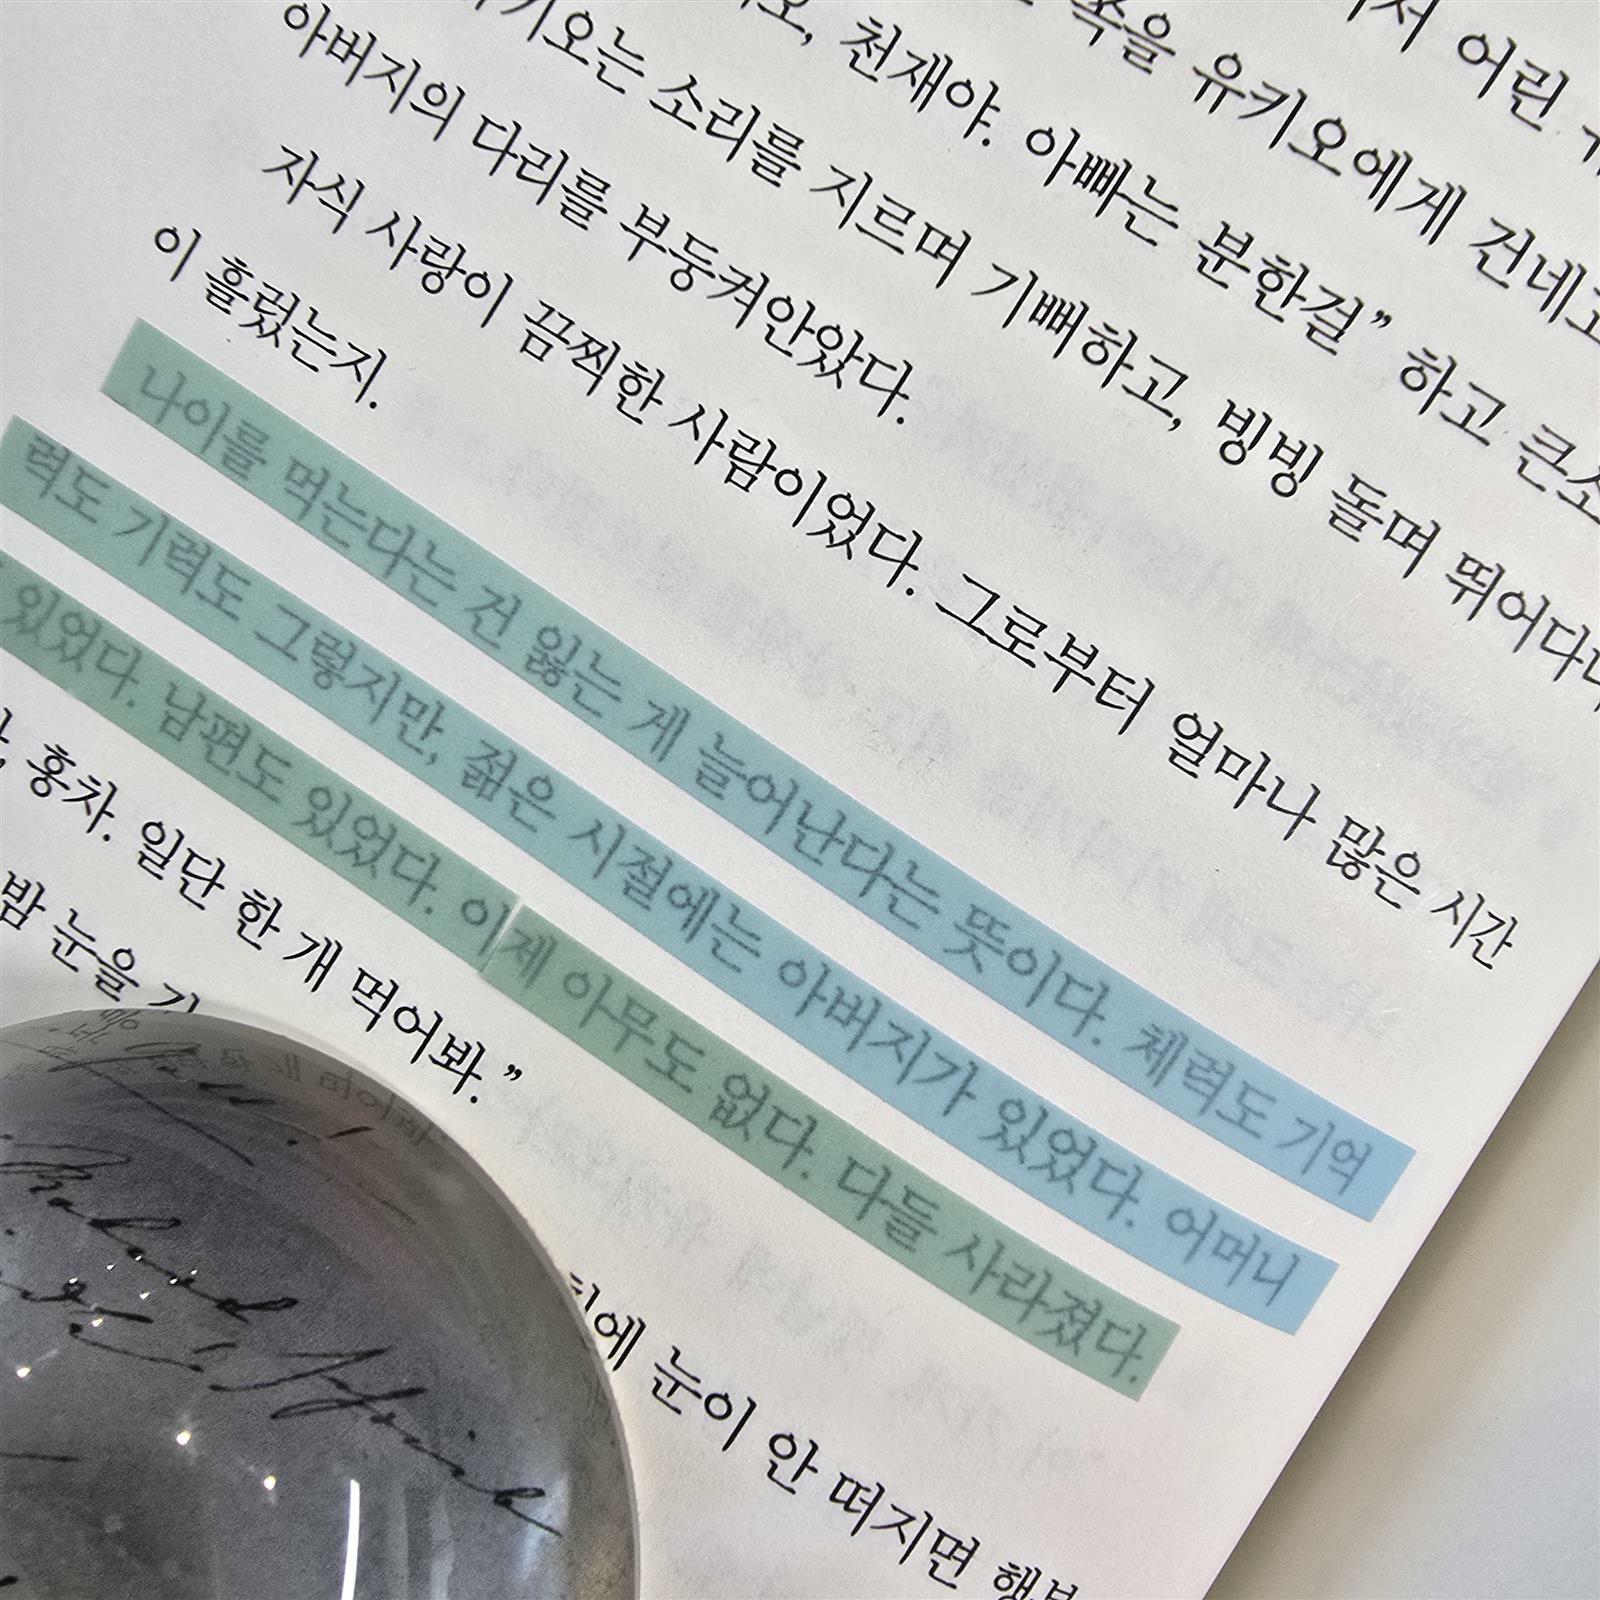 서 어린
쪽을 유키오에게 건네고
천재야. 아빠는 분한걸” 하고 큰소
키오는 소리를 지르며 기뻐하고, 빙빙 돌며 뛰어다니
아버지의 다리를 부둥켜안았다.
자식 사랑이 끔찍한 사람이었다. 그로부터 얼마나 많은 시간
이 흘렀는지.
나이를 먹는다는 건 잃는 게 늘어난다는 뜻이다. 체력도 기억
력도 기력도 그렇지만, 젊은 시절에는 아버지가 있었다. 어머니
있었다. 남편도 있었다. 이제 아무도 없다. 다들 사라졌다.
홍차. 일단 한 개 먹어봐.”
밤 눈을
에 눈이 안 떠지면